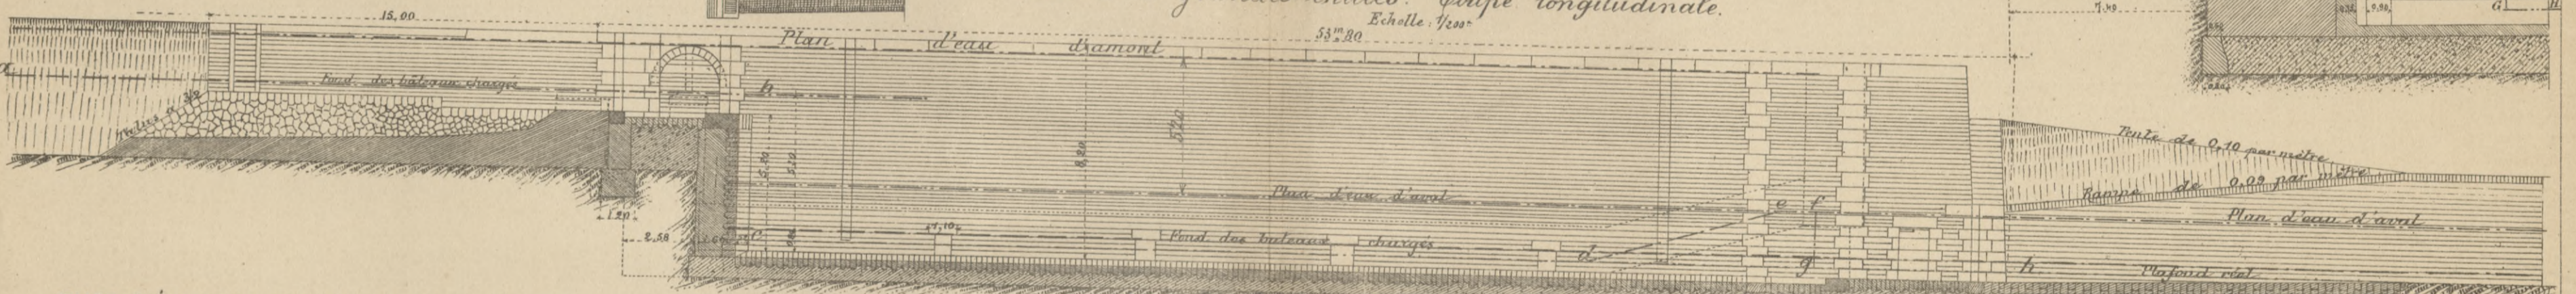 Coupe longitudinale.
Echelle: 1/200e
15,00
53m,80
7,40
0,80
G
H
Plan d'eau d'amont
Fond des bateaux chargés
h
a
Talus à 3/2
5,20
5,20
8,80
520
Plan d'eau d'aval
e f
Pente de 0,10 par mètre
Rampe de 0,09 par mètre
Plan d'eau d'aval
1,20
2,58
c
1,10
Fond des bateaux chargés
d
g
h
Plafond réel